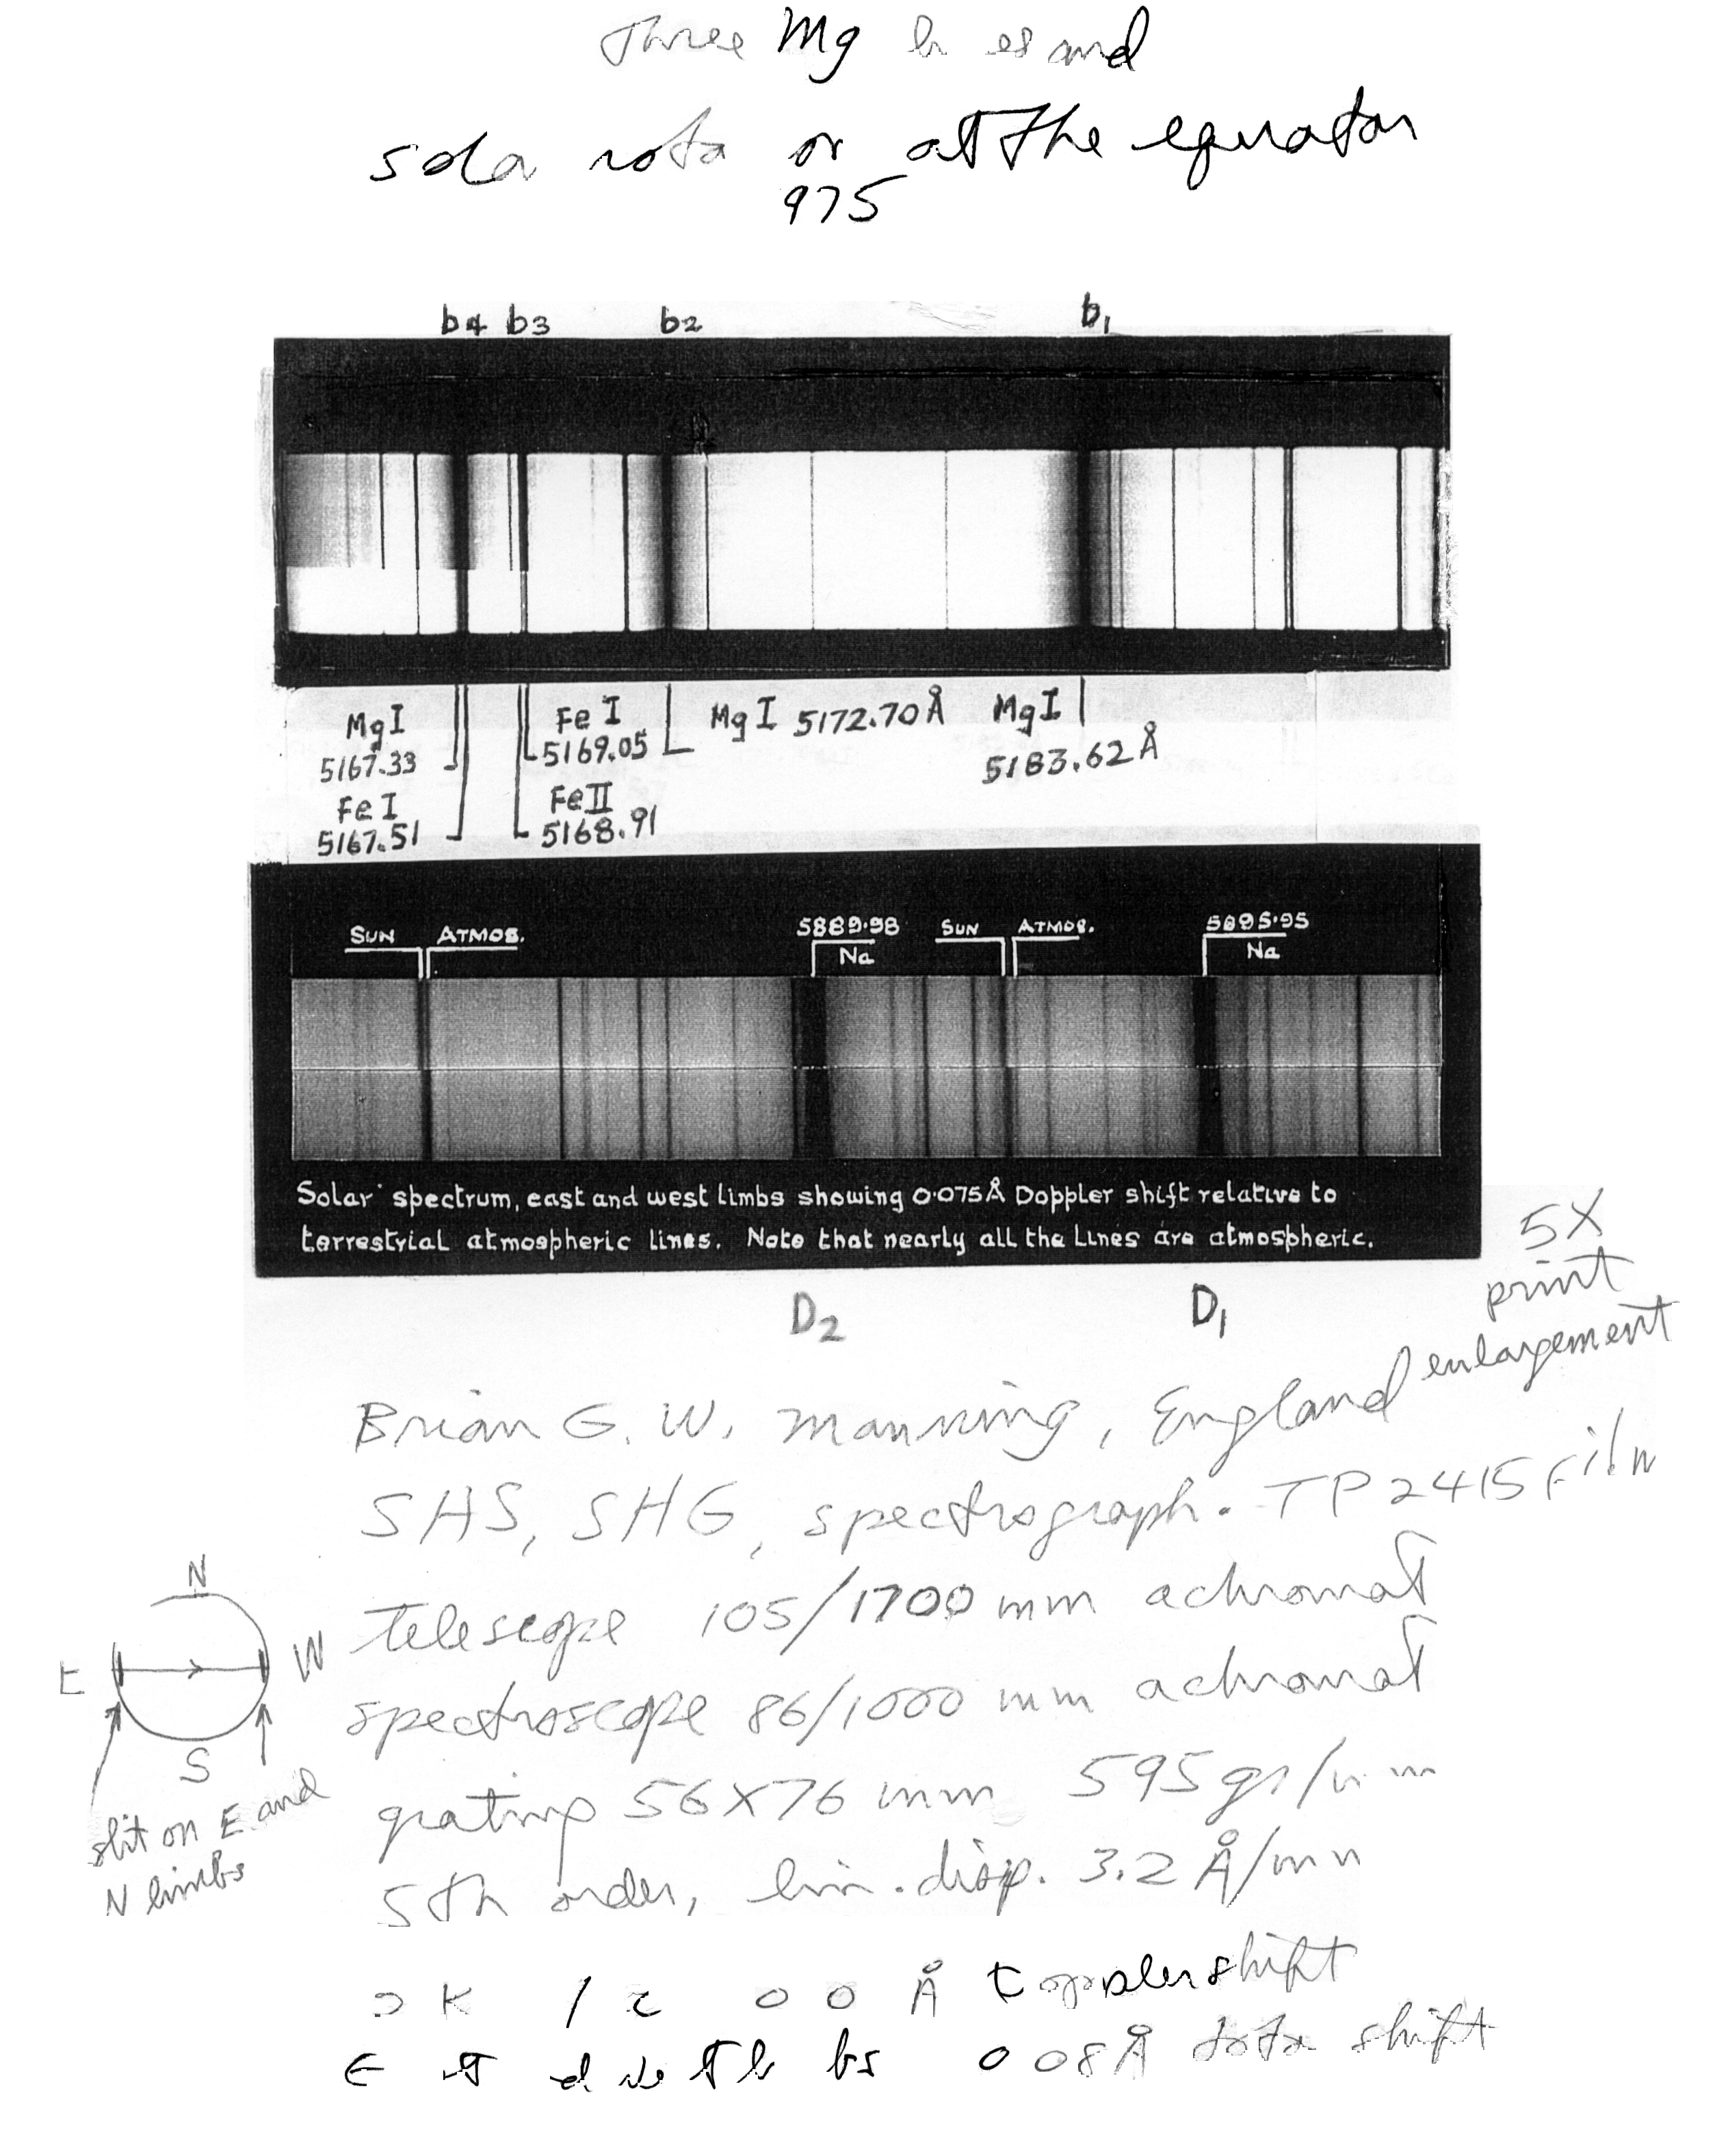 Three Mg and
at the equator
975
b4 b3 b2 b1
MgI
5167.33
FeI
5167.51
FeI
5169.05
FeII
5168.91
MgI 5172.70Å
MgI
5183.62Å
SUN ATMOS. 5889.98 Na SUN ATMOS. 5895.95 Na
Solar spectrum, east and west limbs showing 0.075Å Doppler shift relative to
terrestrial atmospheric lines. Note that nearly all the lines are atmospheric.
D2 D1
5X
print
enlargement
Brian G. W. Manning, England
SHS, SHG, spectrograph. TP2415 Film
telescope 105/1700 mm achromat
spectroscope 86/1000 mm achromat
grating 56X76 mm 595 gr/mm
5th order, lin. disp. 3.2 Å/mm
Å shift
0.08Å shift
N
E W
S
slit on E and
N limbs